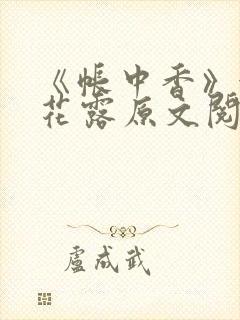 《帐中香》
花露原文阅
卢成武